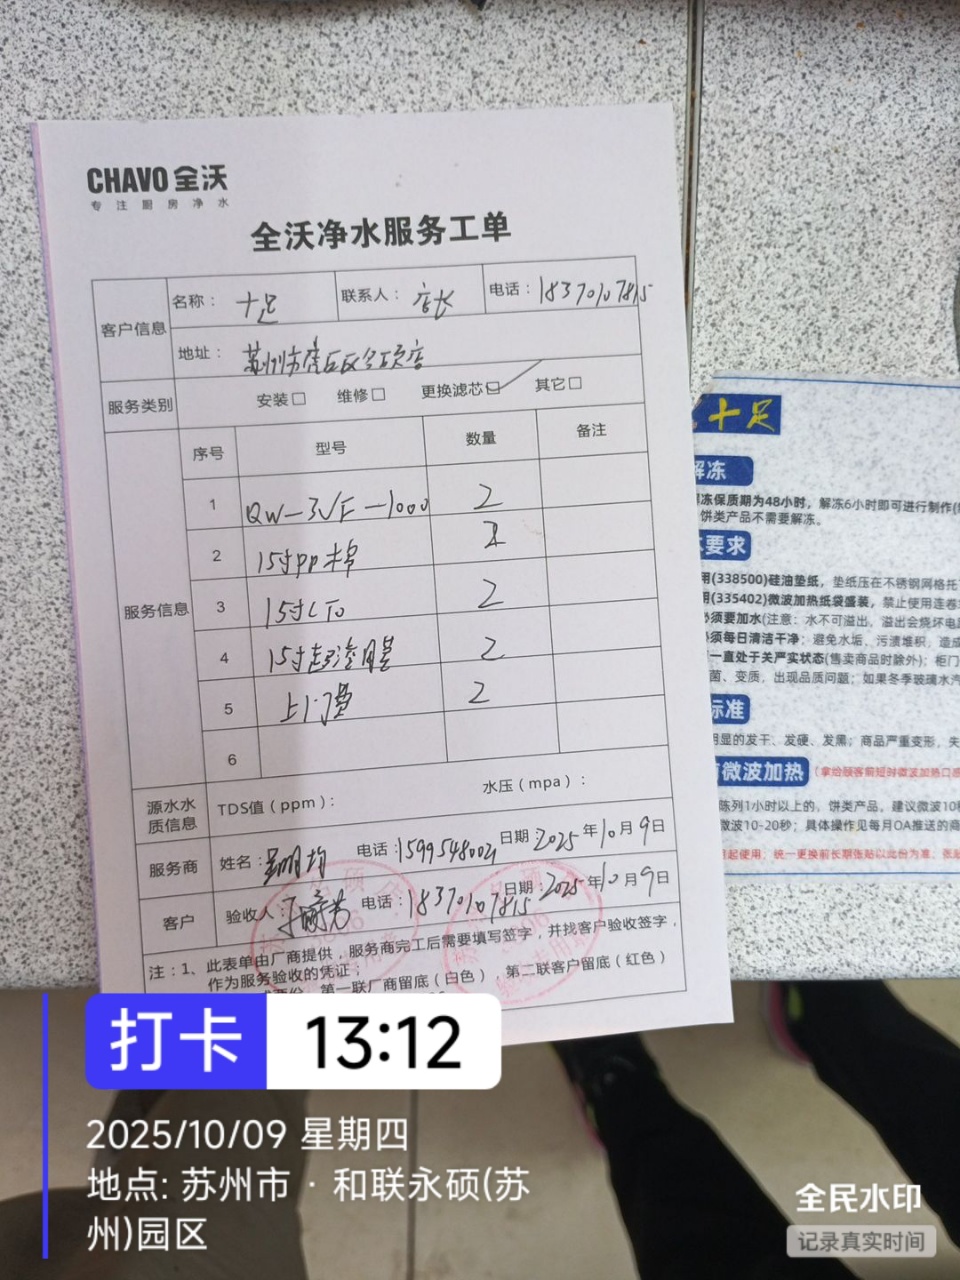 CHAVO 全沃
专注厨房净水
全沃净水服务工单
客户信息 名称： 十足 联系人： 店长 电话： 18370107815
地址： 苏州市虎丘区
服务类别 安装☐ 维修☐ 更换滤芯☐ 其它☐
服务信息 序号 型号 数量 备注
1 QW-3VF-1000 2
2 15寸PP棉
3 15寸CTO 2
4 15寸超滤膜 2
5 上门费 2
6
源水水质信息 TDS值（ppm）： 水压（mpa）：
服务商 姓名： 电话：15995480021 日期：2025年10月9日
客户 验收人： 电话：18370107815 日期：2025年10月9日
注：1、此表单由厂商提供，服务商完工后需要填写签字，并找客户验收签字，
作为服务验收的凭证；
第一联厂商留底（白色），第二联客户留底（红色）
十足
解冻
冻保质期为48小时，解冻6小时即可进行制作
饼类产品不需要解冻。
要求
用(338500)硅油垫纸，垫纸压在不锈钢网格托
用(335402)微波加热纸袋盛装，禁止使用连卷
必须要加水(注意：水不可溢出，溢出会烧坏电
必须每日清洁干净：避免水垢、污渍堆积，造成
一直处于关严实状态(售卖商品时除外)；柜门
菌、变质，出现品质问题；如果冬季玻璃水汽
标准
明显的发干、发硬、发黑；商品严重变形，失
微波加热 （拿给顾客前短时微波加热口感
陈列1小时以上的，饼类产品，建议微波10秒
微波10-20秒；具体操作见每月OA推送的商
起使用；统一更换前长期张贴以此份为准；张贴
打卡 13:12
2025/10/09 星期四
地点: 苏州市 · 和联永硕(苏
州)园区
全民水印
记录真实时间